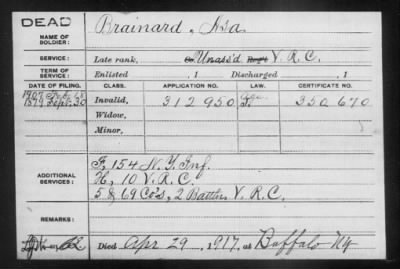 DEAD
NAME OF SOLDIER:
Brainard, Asa
SERVICE:
Late rank, Co. Unass'd Reg't V. R. C.
TERM OF SERVICE:
Enlisted , 1 Discharged , 1
DATE OF FILING. CLASS. APPLICATION NO. LAW. CERTIFICATE NO.
1907 Feb
1879 Sept. 30 Invalid, 312950 350670
Widow,
Minor,
ADDITIONAL SERVICES:
F, 154 N.Y. Inf.
H, 10 V. R. C.
5 & 69 Co's, 2 Battln V. R. C.
REMARKS:
Died Apr 29, 1917, at Buffalo Ny